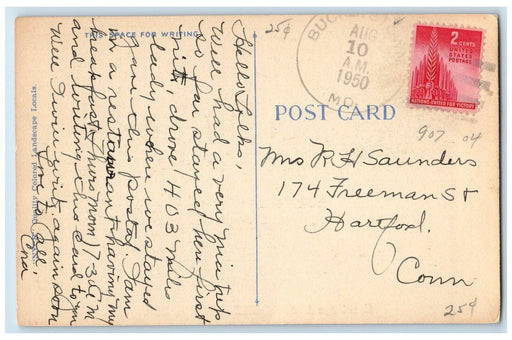 THIS SPACE FOR WRITING
25¢
Hello Folks,
Well had a very nice trip
so far stayed here first
nite drove 403 miles
lady where we stayed
gave this postal. I am
in a restaurant having my
breakfast (Thurs morn) 7:30 A.M
and writing this card to you
Well I will write again soon
Love to all,
Colored Landscape Locals.
AUG
10
A.M.
1950
MD.
2 CENTS
UNITED
STATES
POSTAGE
NATIONS UNITED FOR VICTORY
POST CARD
907 04
Mrs R H Saunders
174 Freeman St
Hartford.
Conn
25¢